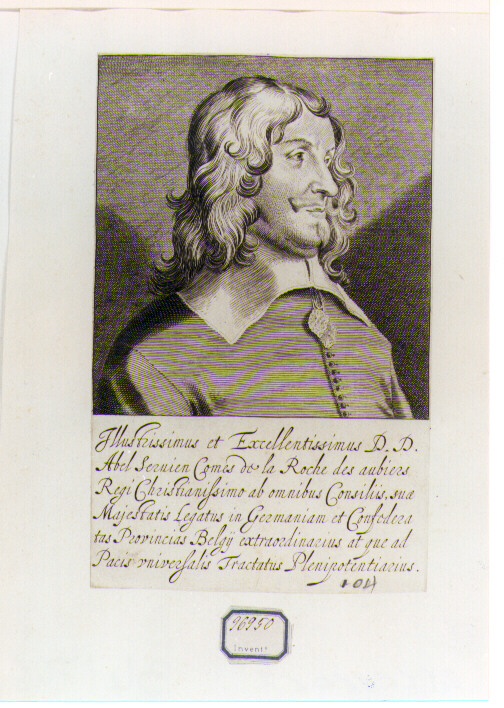 Jllustrissimus et Excellentissimus D. D.
Abel Seruien Comes de la Roche des aubiers
Regi Christianissimo ab omnibus Consiliis, suæ
Majestatis Legatus in Germaniam et Confœdera
tas Provincias Belgÿ extraordinarius at que ad
Pacis vniversalis Tractatus Plenipotentiarius.
104
96950
Invent^r